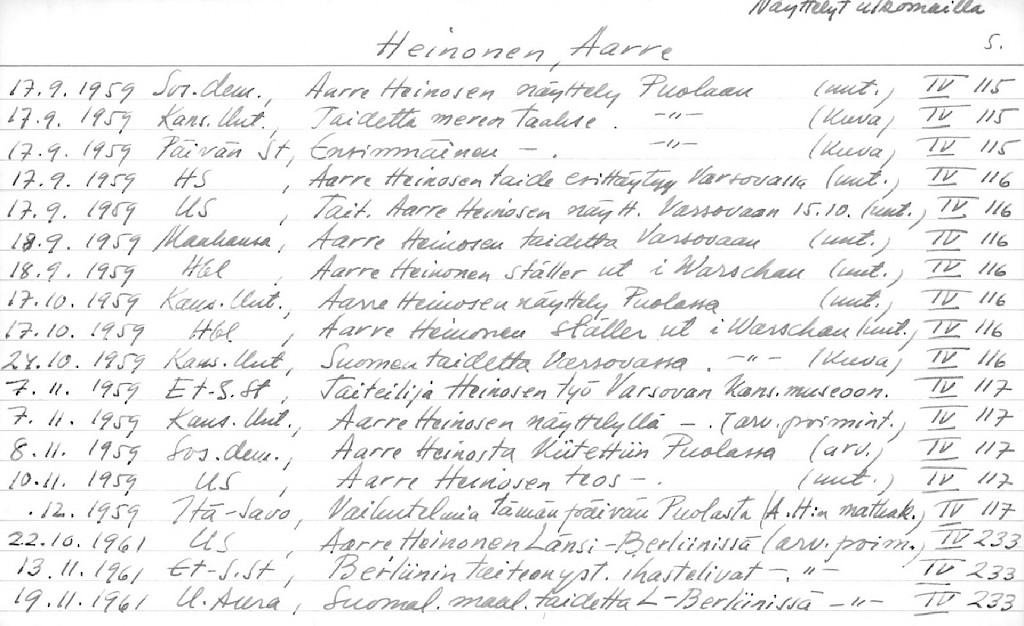 Näyttelyt ulkomailla
Heinonen, Aarre s.
17.9. 1959 Sos.dem., Aarre Heinosen näyttely Puolaan (uut.) IV 115
17.9. 1959 Kans.Uut., Taidetta meren taakse. -"- (Kuva) IV 115
17.9. 1959 Päivän St, Ensimmäinen -. -"- (Kuva) IV 115
17.9. 1959 HS , Aarre Heinosen taide esittäytyy Varsovassa (uut.) IV 116
17.9. 1959 US , Tait. Aarre Heinosen näytt. Varsovaan 15.10. (uut.) IV 116
18.9. 1959 Maakansa, Aarre Heinosen taidetta Varsovaan (uut.) IV 116
18.9. 1959 Hbl , Aarre Heinonen ställer ut i Warschau (uut.) IV 116
17.10. 1959 Kans.Uut., Aarre Heinosen näyttely Puolassa (uut.) IV 116
17.10. 1959 Hbl , Aarre Heinonen ställer ut i Warschau (uut.) IV 116
24.10. 1959 Kans.Uut, Suomen taidetta Varsovassa. -"- (Kuva) IV 116
7.11. 1959 Et-S.St , Taiteilija Heinosen työ Varsovan Kans.museoon. IV 117
7.11. 1959 Kans.Uut., Aarre Heinosen näyttelyllä -. (arv.poimint.) IV 117
8.11. 1959 Sos.dem., Aarre Heinosta kiitettiin Puolassa (arv.) IV 117
10.11. 1959 US , Aarre Heinosen teos -. (uut.) IV 117
.12. 1959 Itä-Savo, Vaikutelmia tämän päivän Puolasta (A.H:n matkak.) IV 117
22.10. 1961 US , Aarre Heinonen Länsi-Berliinissä (arv.poim.) IV 233
13.11. 1961 Et-S.St , Berliinin taiteenyst. ihastelivat -. -"- IV 233
19.11. 1961 U.Aura, Suomal. maal.taidetta L-Berliinissä -"- IV 233